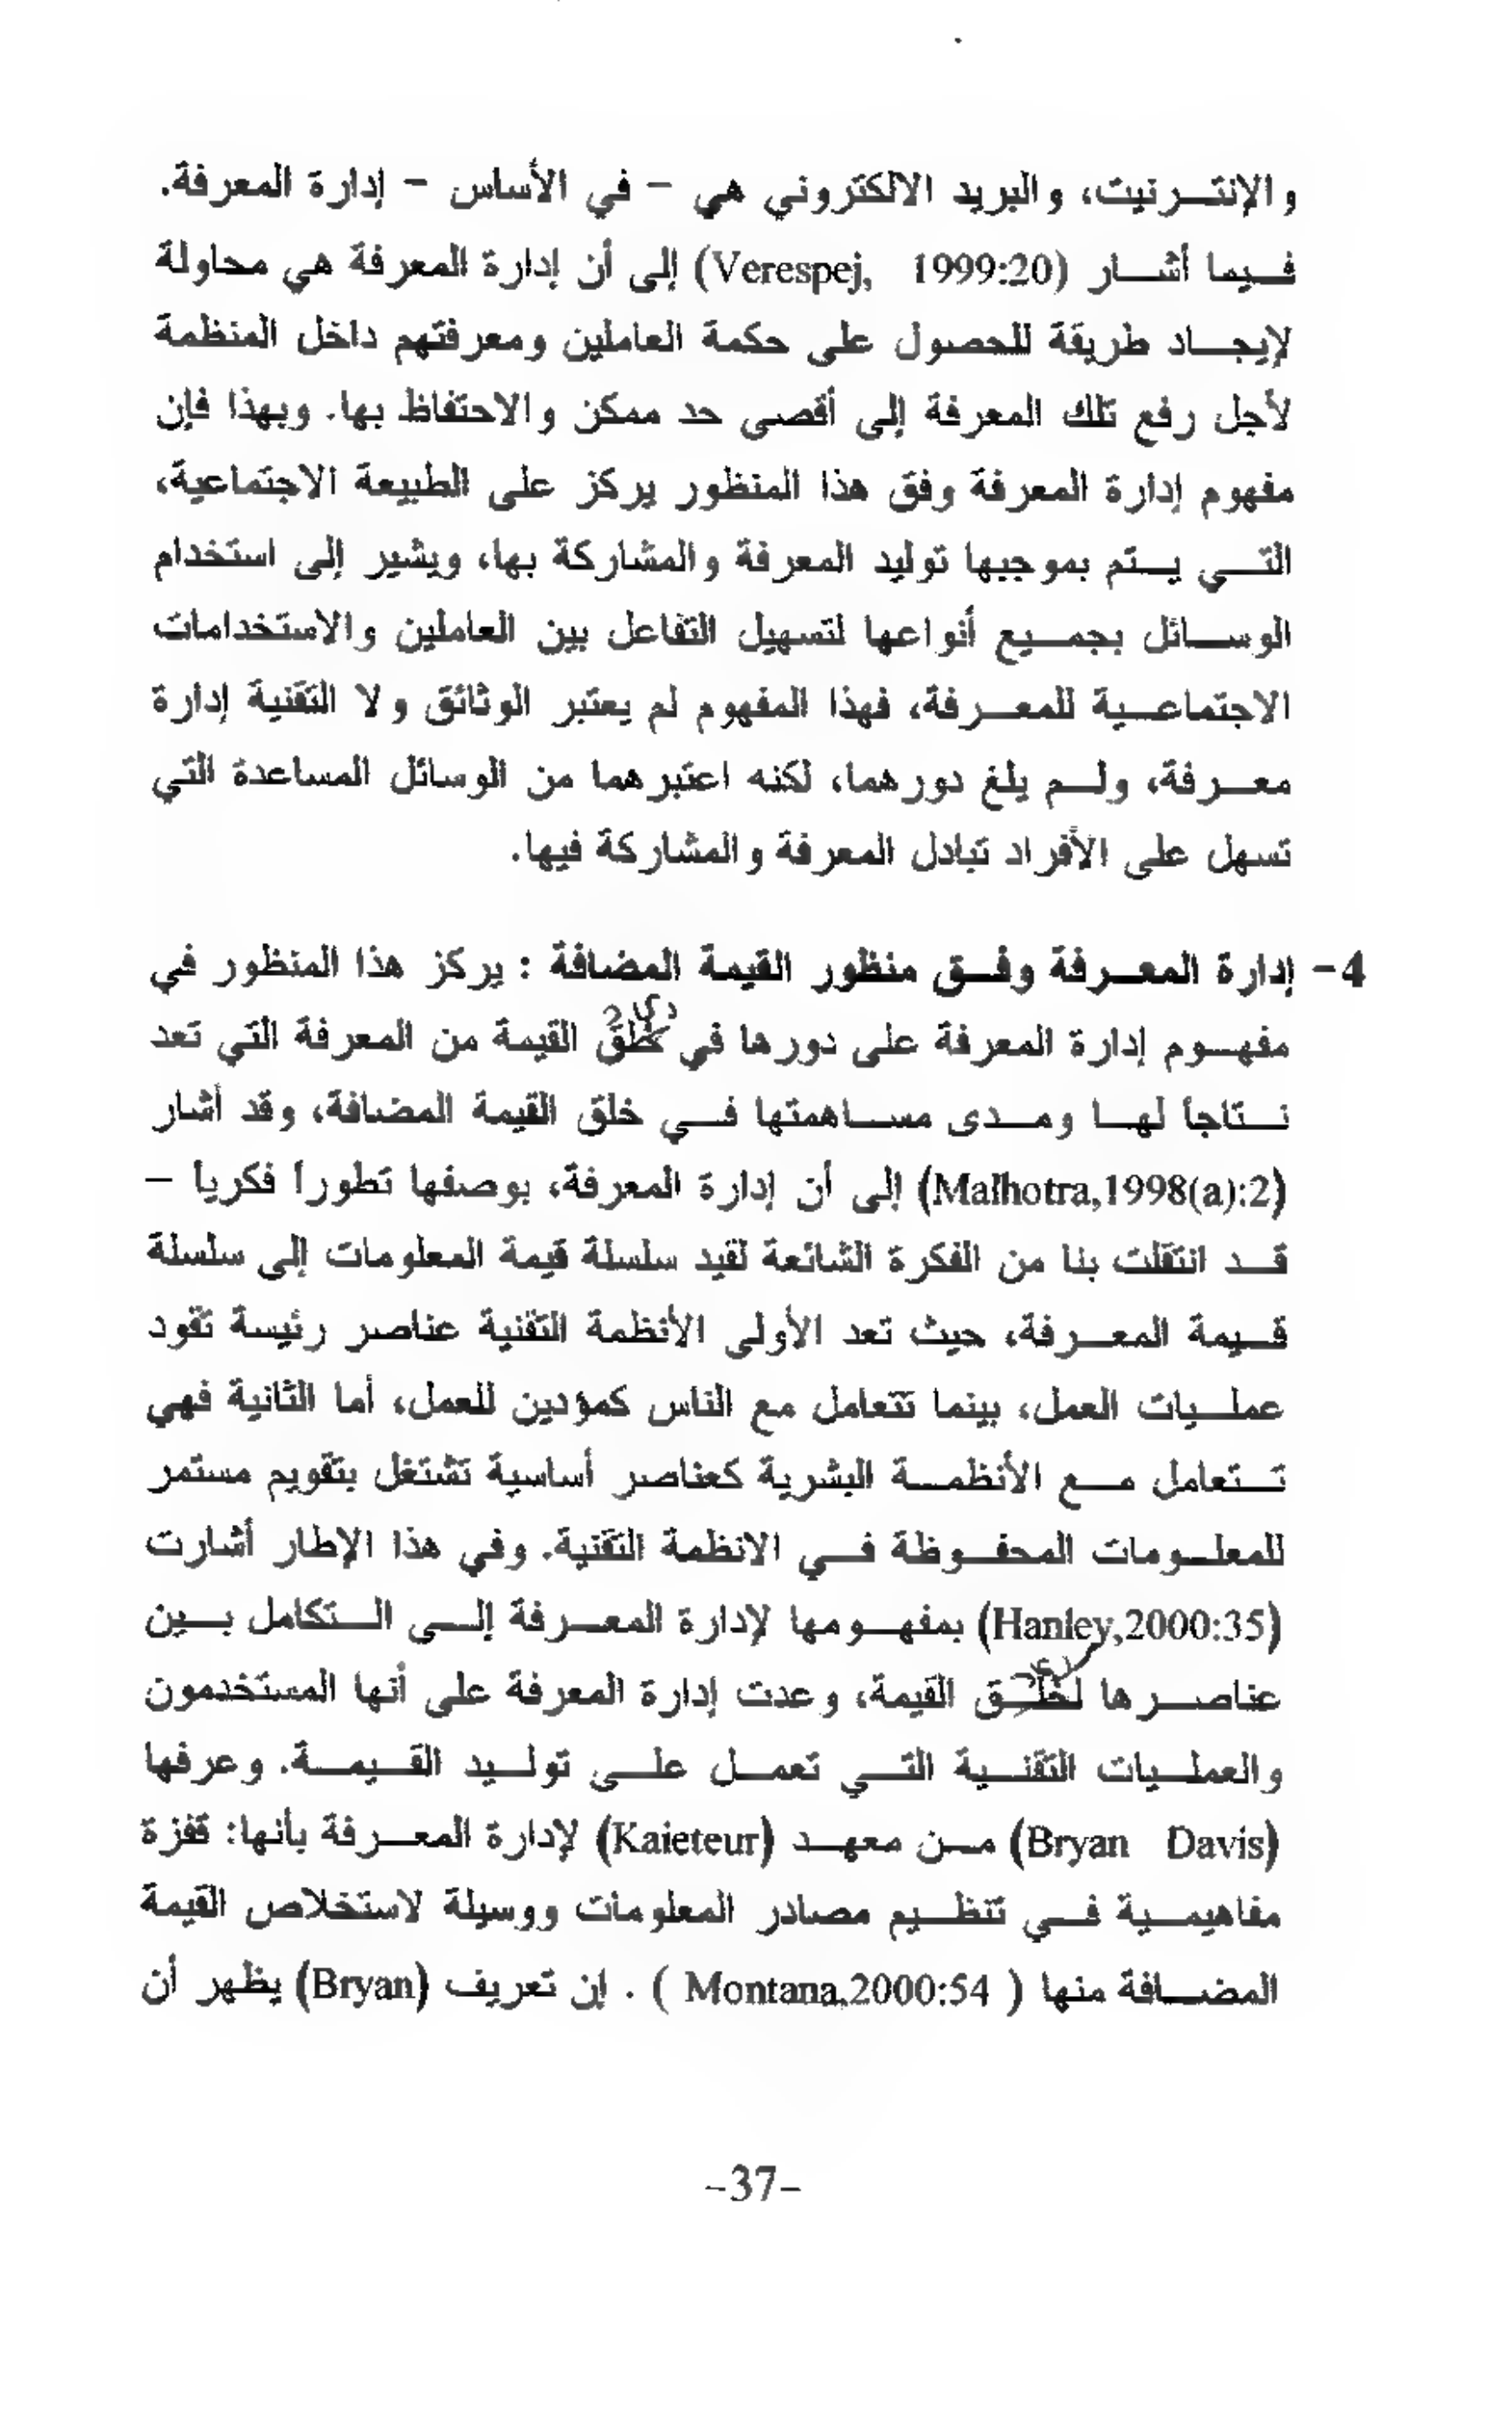 والإنترنيت، والبريد الالكتروني هي - في الأساس - إدارة المعرفة.
فيما أشار (Verespej, 1999:20) إلى أن إدارة المعرفة هي محاولة
لإيجاد طريقة للحصول على حكمة العاملين ومعرفتهم داخل المنظمة
لأجل رفع تلك المعرفة إلى أقصى حد ممكن والاحتفاظ بها. وبهذا فإن
مفهوم إدارة المعرفة وفق هذا المنظور يركز على الطبيعة الاجتماعية،
التي يتم بموجبها توليد المعرفة والمشاركة بها، ويشير إلى استخدام
الوسائل بجميع أنواعها لتسهيل التفاعل بين العاملين والاستخدامات
الاجتماعية للمعرفة، فهذا المفهوم لم يعتبر الوثائق ولا التقنية إدارة
معرفة، ولم يلغ دورهما، لكنه اعتبرهما من الوسائل المساعدة التي
تسهل على الأفراد تبادل المعرفة والمشاركة فيها.
4- إدارة المعرفة وفق منظور القيمة المضافة : يركز هذا المنظور في
مفهوم إدارة المعرفة على دورها في خلق القيمة من المعرفة التي تعد
نتاجاً لها ومدى مساهمتها في خلق القيمة المضافة، وقد أشار
(Malhotra,1998(a):2) إلى أن إدارة المعرفة، بوصفها تطوراً فكرياً -
قد انتقلت بنا من الفكرة الشائعة لقيد سلسلة قيمة المعلومات إلى سلسلة
قيمة المعرفة، حيث تعد الأولى الأنظمة التقنية عناصر رئيسة تقود
عمليات العمل، بينما تتعامل مع الناس كمؤدين للعمل، أما الثانية فهي
تتعامل مع الأنظمة البشرية كعناصر أساسية تشتغل بتقويم مستمر
للمعلومات المحفوظة في الانظمة التقنية. وفي هذا الإطار أشارت
(Hanley,2000:35) بمفهومها لإدارة المعرفة إلى التكامل بين
عناصرها لخلق القيمة، وعدت إدارة المعرفة على أنها المستخدمون
والعمليات التقنية التي تعمل على توليد القيمة. وعرفها
(Bryan Davis) من معهد (Kaieteur) لإدارة المعرفة بأنها: قفزة
مفاهيمية في تنظيم مصادر المعلومات ووسيلة لاستخلاص القيمة
المضافة منها ( Montana,2000:54 ) . إن تعريف (Bryan) يظهر أن
-37-